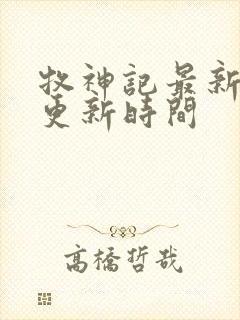 牧神記最新
更新時間
高橋哲哉